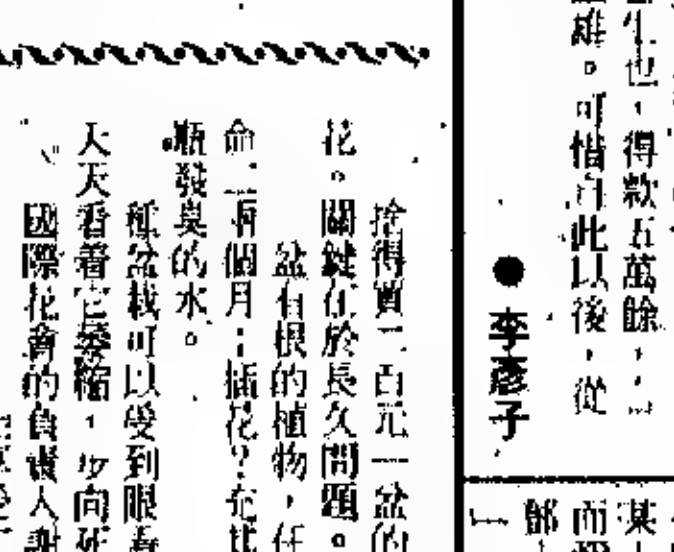 生也，得款五萬餘，
雄。可惜自此以後，從
● 李彥子
某
而
鄧
捨得買二百元一盆的
花。關鍵在於長久問題。
盆有根的植物，任
命一兩個月；插花？充其
瓶發臭的水。
種盆栽可以受到眼看
天天看着它萎縮，步向死
國際花會的負責人謝